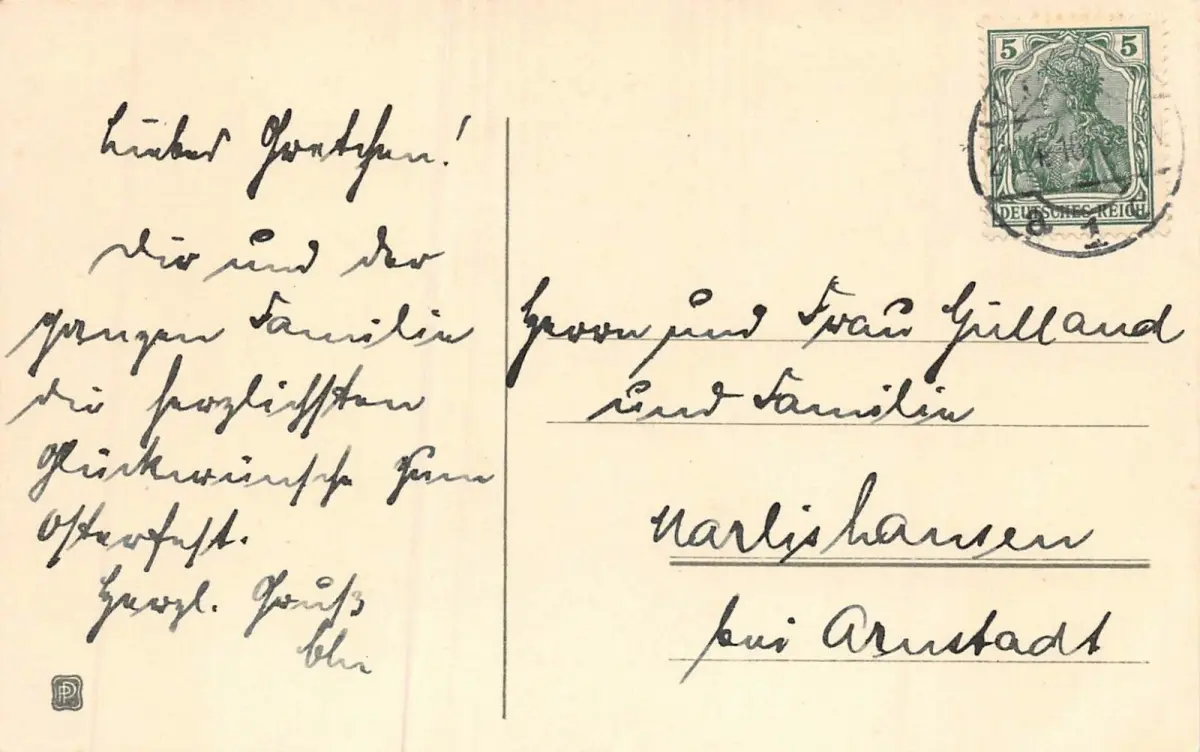 Liebes Gretchen!
Dir und der
ganzen Familie
die herzlichsten
Glückwünsche zum
Osterfest.
Herzl. Gruß
5 5
DEUTSCHES REICH
a 1
Herrn und Frau Gülland
und Familie
Marlishausen
bei Arnstadt